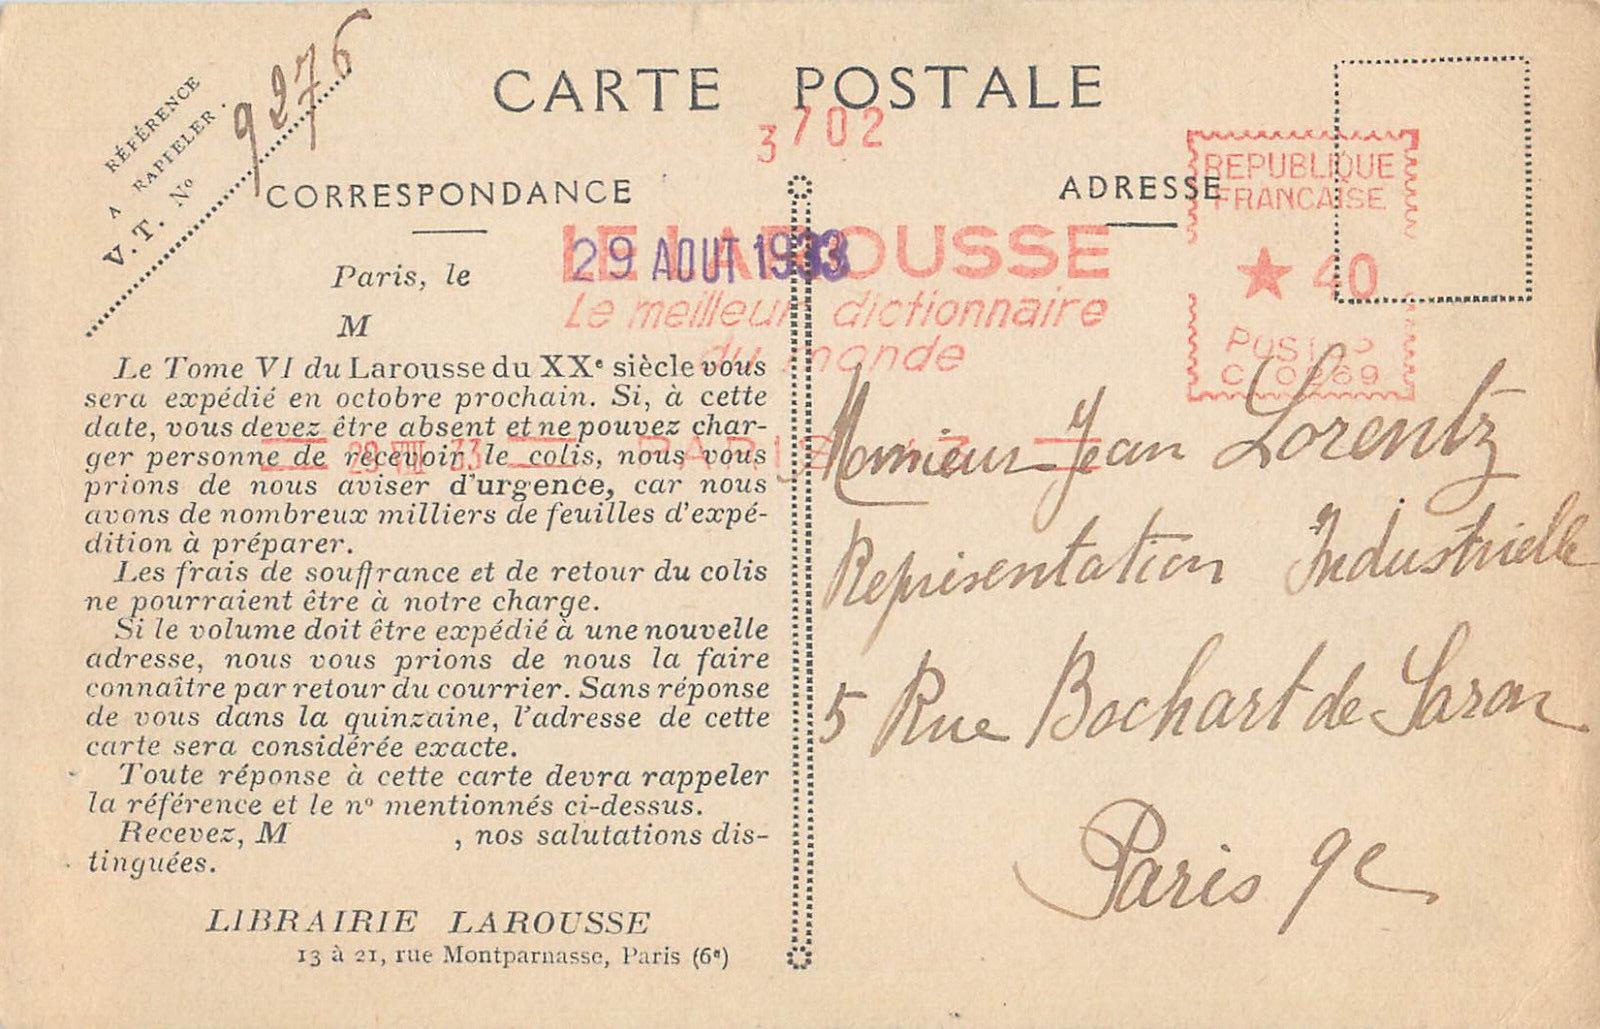 CARTE POSTALE
RÉFÉRENCE
A RAPPELER.
V. T. Nº 9276
3702
CORRESPONDANCE
ADRESSE
REPUBLIQUE
FRANCAISE
★ 40
POSTES
LE LAROUSSE
Le meilleur dictionnaire
du monde
29 AOUT 1933
29 VIII 33
PARIS
Paris, le
M
Le Tome VI du Larousse du XXᵉ siècle vous
sera expédié en octobre prochain. Si, à cette
date, vous devez être absent et ne pouvez char-
ger personne de recevoir le colis, nous vous
prions de nous aviser d'urgence, car nous
avons de nombreux milliers de feuilles d'expé-
dition à préparer.
Les frais de souffrance et de retour du colis
ne pourraient être à notre charge.
Si le volume doit être expédié à une nouvelle
adresse, nous vous prions de nous la faire
connaître par retour du courrier. Sans réponse
de vous dans la quinzaine, l'adresse de cette
carte sera considérée exacte.
Toute réponse à cette carte devra rappeler
la référence et le nº mentionnés ci-dessus.
Recevez, M , nos salutations dis-
tinguées.
LIBRAIRIE LAROUSSE
13 à 21, rue Montparnasse, Paris (6ᵉ)
Monsieur Jean Lorentz
Représentation Industrielle
5 Rue Bochart de Saron
Paris 9e